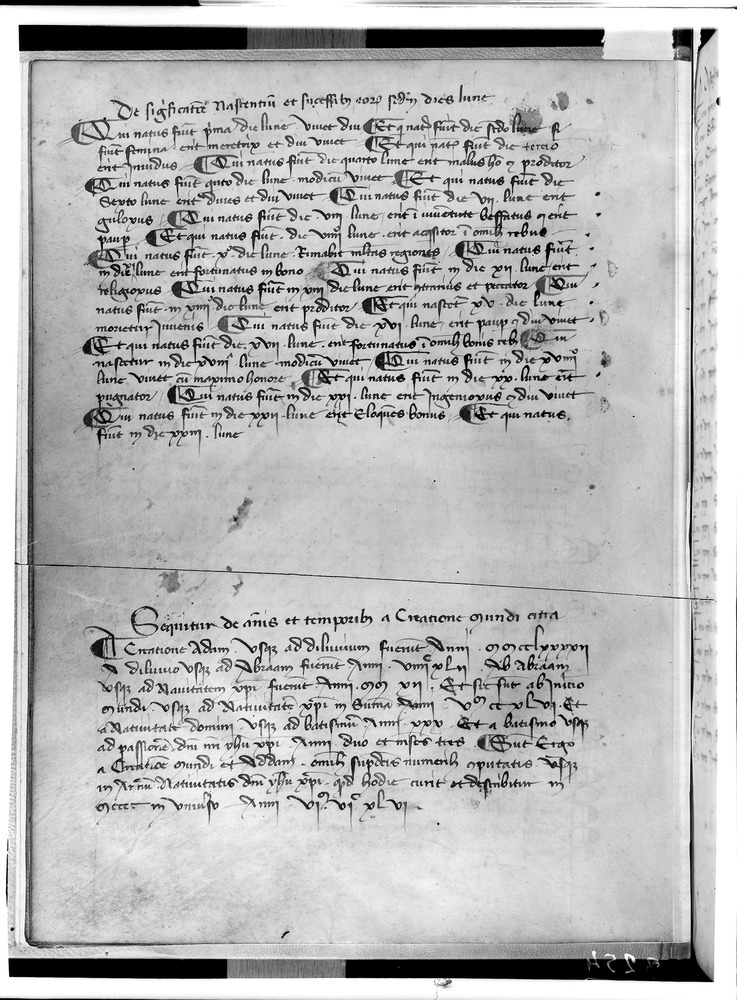 De significatione Nascentiū et successibꝫ eoꝝ scdm dies lune
Qui natus fuit pͥma die lune viuet diu Et q natꝰ fuit die scdo lune si
fuit femina erit meretrix et diu viuet Et qui natꝰ fuit die tercio
erit Inuidus Qui natus fuit die quarto lune erit malus hō ⁊ proditor
Qui natus fuit qnto die lune modicū viuet Et qui natus fuit die
Sexto lune erit diues et diu viuet Qui natus fuit die vii lune erit
gulosus Qui natus fuit die viii lune erit ī iuuētute beffatus ⁊ erit
paup Et qui natus fuit die viiij lune erit acqsitor ī omībꝫ rebus
Qui natus fuit xͦ die lune Rimabit mltas regiones Qui natus fuit
in die lune erit fortunatus in bono Qui natus fuit in die xii lune erit
religiosus Qui natus fuit in xiii die lune erit et peccator Qui
natus fuit in xiiii die lune erit proditor Et qui nascet xv die lune
morietur Iuuenis Qui natus fuit die xvi lune erit paup ⁊ diu viuet
Et qui natus fuit die xvii lune erit fortunatus ī omībꝫ bonis rebꝫ Qui
nascetur in die xviii lune modicū viuet Qui natus fuit in die xviiij
lune viuet cū maximo honore Et qui natus fuit in die xx lune erit
pugnator Qui natus fuit in die xxi lune erit Ingeniosus ⁊ diu viuet
Qui natus fuit in die xxii lune erit Eloques bonus Et qui natus
fuit in die xxiii lune
Sequitur de annis et temporibꝫ a Creatione mundi citra
A Creatione Adam vsqꝫ ad diluuium fuerūt Anni mmcclxxxxii
A diluuio vsqꝫ ad Abraam fuerūt Anni xlii Ab Abraam
vsqꝫ ad Natiuitatem xpi fuerūt Anni mm xii Et sic sūt ab Inicio
mundi vsqꝫ ad Natiuitatē xpi in Sūma Anni vͫ cc xlvi Et
a Natiuitate domini vsqꝫ ad batismū Anni xxx Et a batismo vsqꝫ
ad passionē dni nri yhu xpi Anni duo et mēses tres Sūt Ergo
a Creatiōe mundi et Addam omībꝫ supdcis numeris 9putatis vsqꝫ
in Annū Natiuitatis dni yhu xpi qd hodie currit et describitur in
mcccc in vniuso Anni viͫ viͨ xlvi
a 254